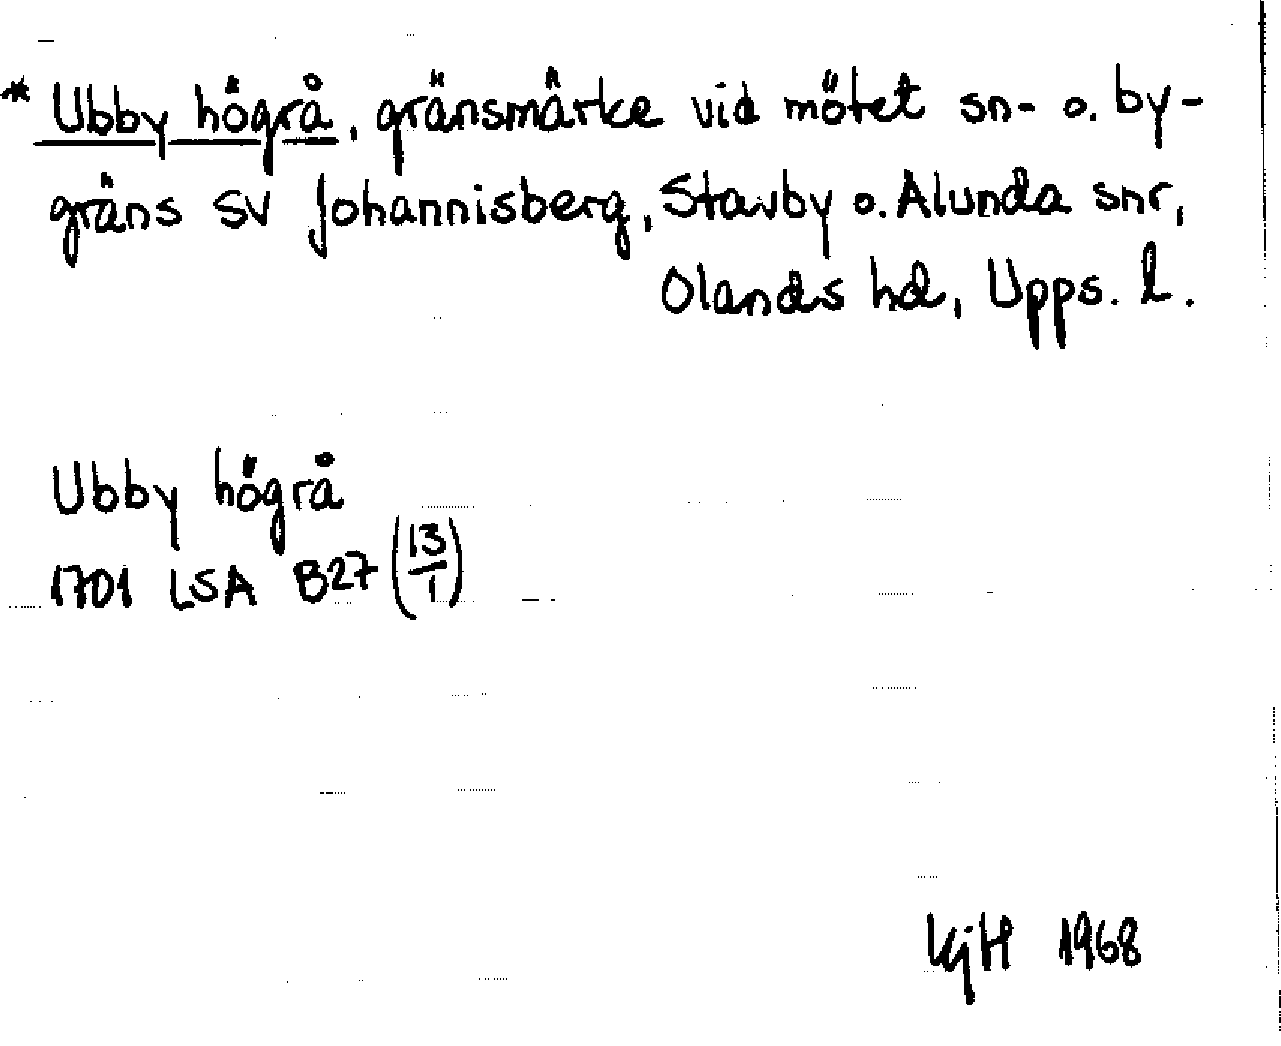 * Ubby högrå, gränsmärke vid mötet sn- o. by-
gräns SV Johannisberg, Stavby o. Alunda snr,
Olands hd, Upps. l.
Ubby högrå
1701 LSA B27 (13/1)
KjH 1968